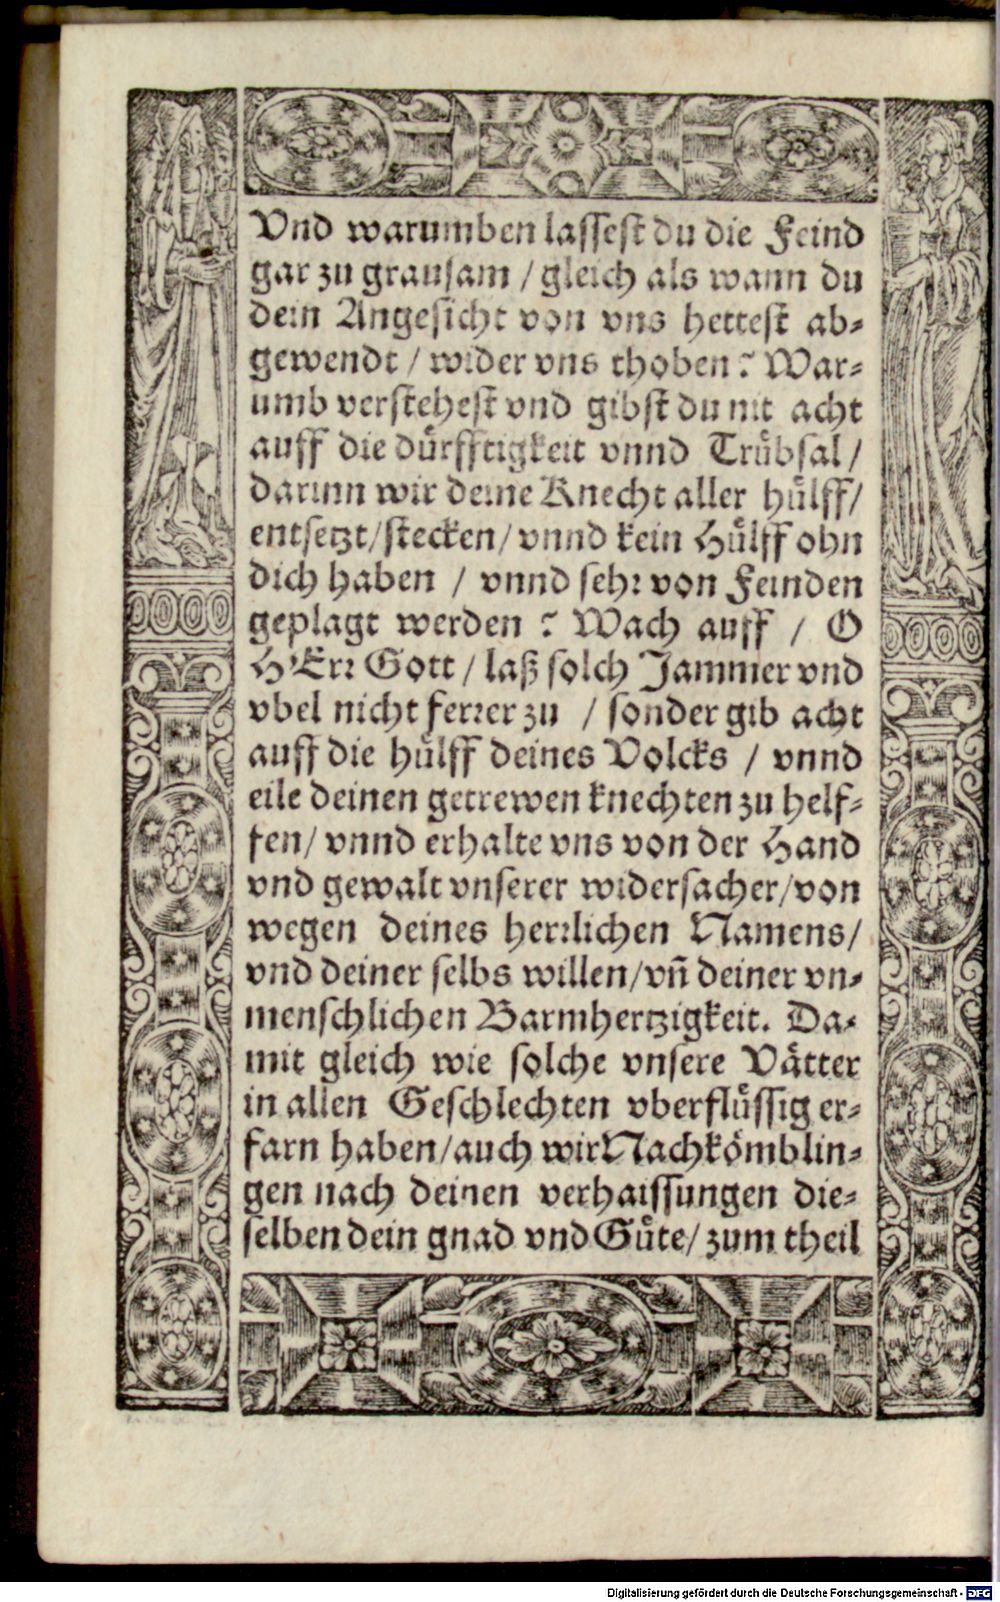 Vnd warumben lassest du die Feind
gar zu grausam / gleich als wann du
dein Angesicht von vns hettest ab-
gewendt / wider vns thoben? War-
umb verstehest vnd gibst du nit acht
auff die dürfftigkeit vnnd Trübsal /
darinn wir deine Knecht aller hülff /
entsetzt / stecken / vnnd kein Hülff ohn
dich haben / vnnd sehr von Feinden
geplagt werden? Wach auff / O
HErr Gott / laß solch Jammer vnd
vbel nicht ferrer zu / sonder gib acht
auff die hülff deines Volcks / vnnd
eile deinen getrewen knechten zu helf-
fen / vnnd erhalte vns von der Hand
vnd gewalt vnserer widersacher / von
wegen deines herrlichen Namens /
vnd deiner selbs willen / vñ deiner vn-
menschlichen Barmhertzigkeit. Da-
mit gleich wie solche vnsere Vätter
in allen Geschlechten vberflüssig er-
farn haben / auch wir Nachkömblin-
gen nach deinen verhaissungen die-
selben dein gnad vnd Güte / zum theil
Digitalisierung gefördert durch die Deutsche Forschungsgemeinschaft - DFG